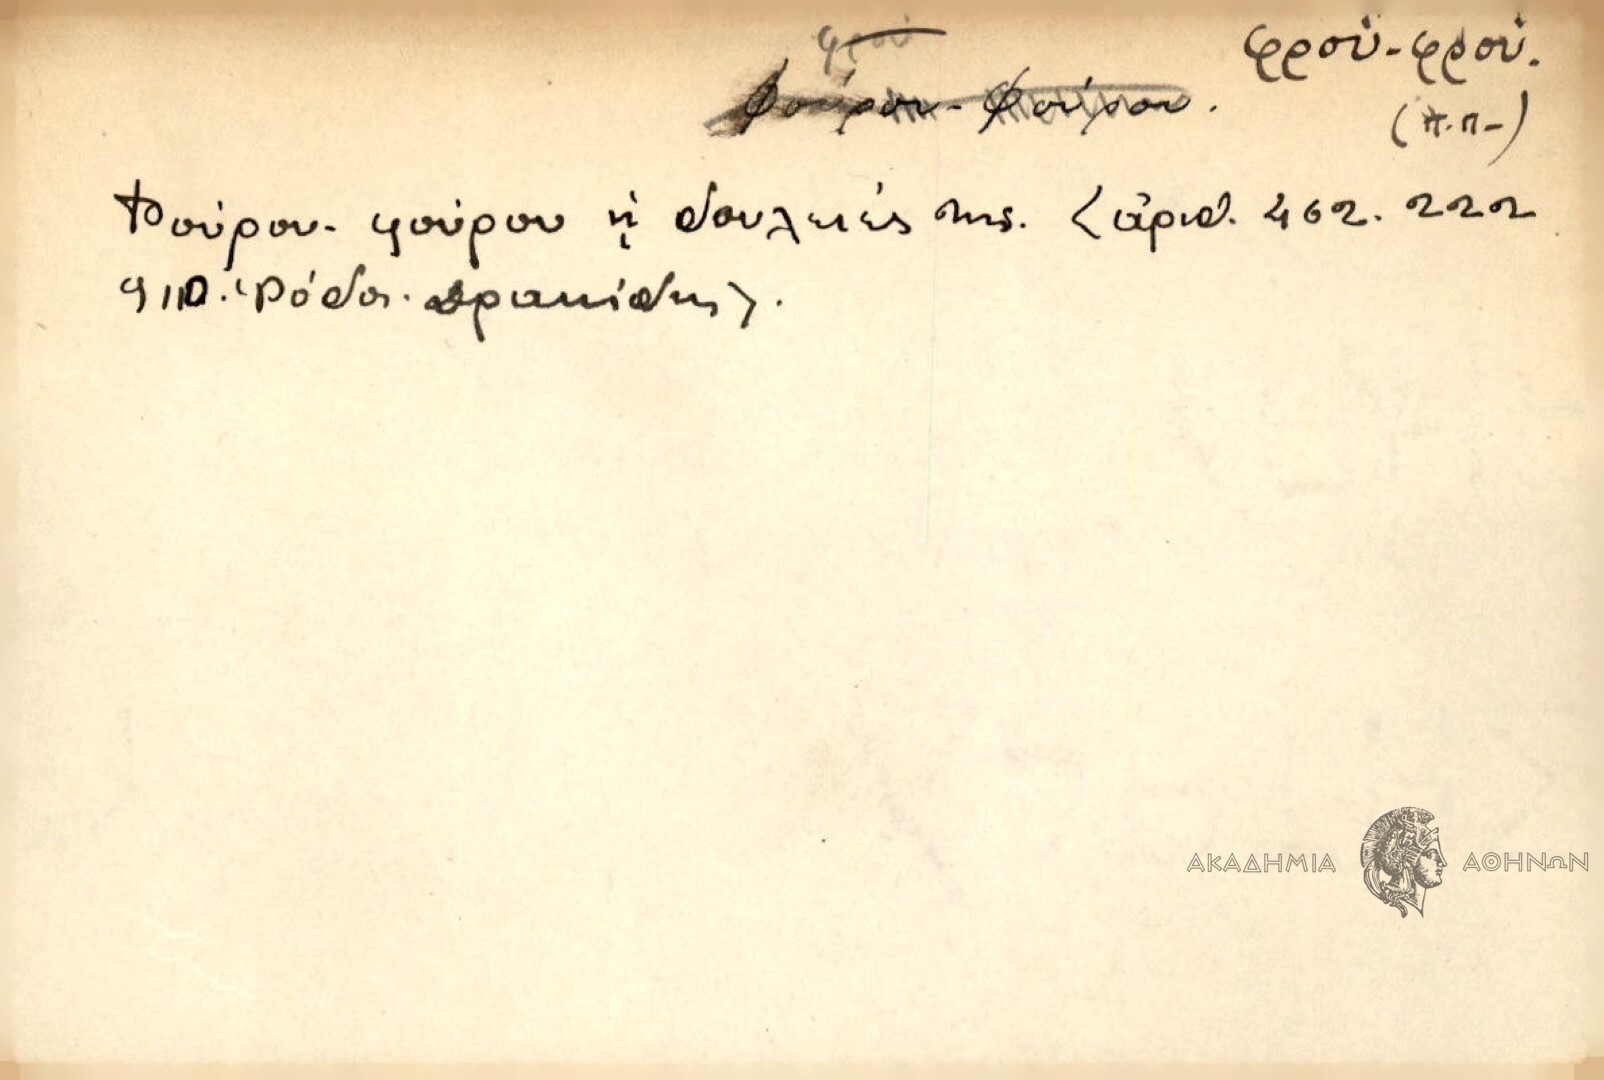 φροῦ
φροῦ-φροῦ.
Φούρου-Φούρου.
(π.π.)
Φούρου-φούρου ἡ δουλειές της. <ἀριθ. 462. 222
Ῥόδος. Δρακίδης>.
ΑΚΑΔΗΜΙΑ ΑΘΗΝΩΝ